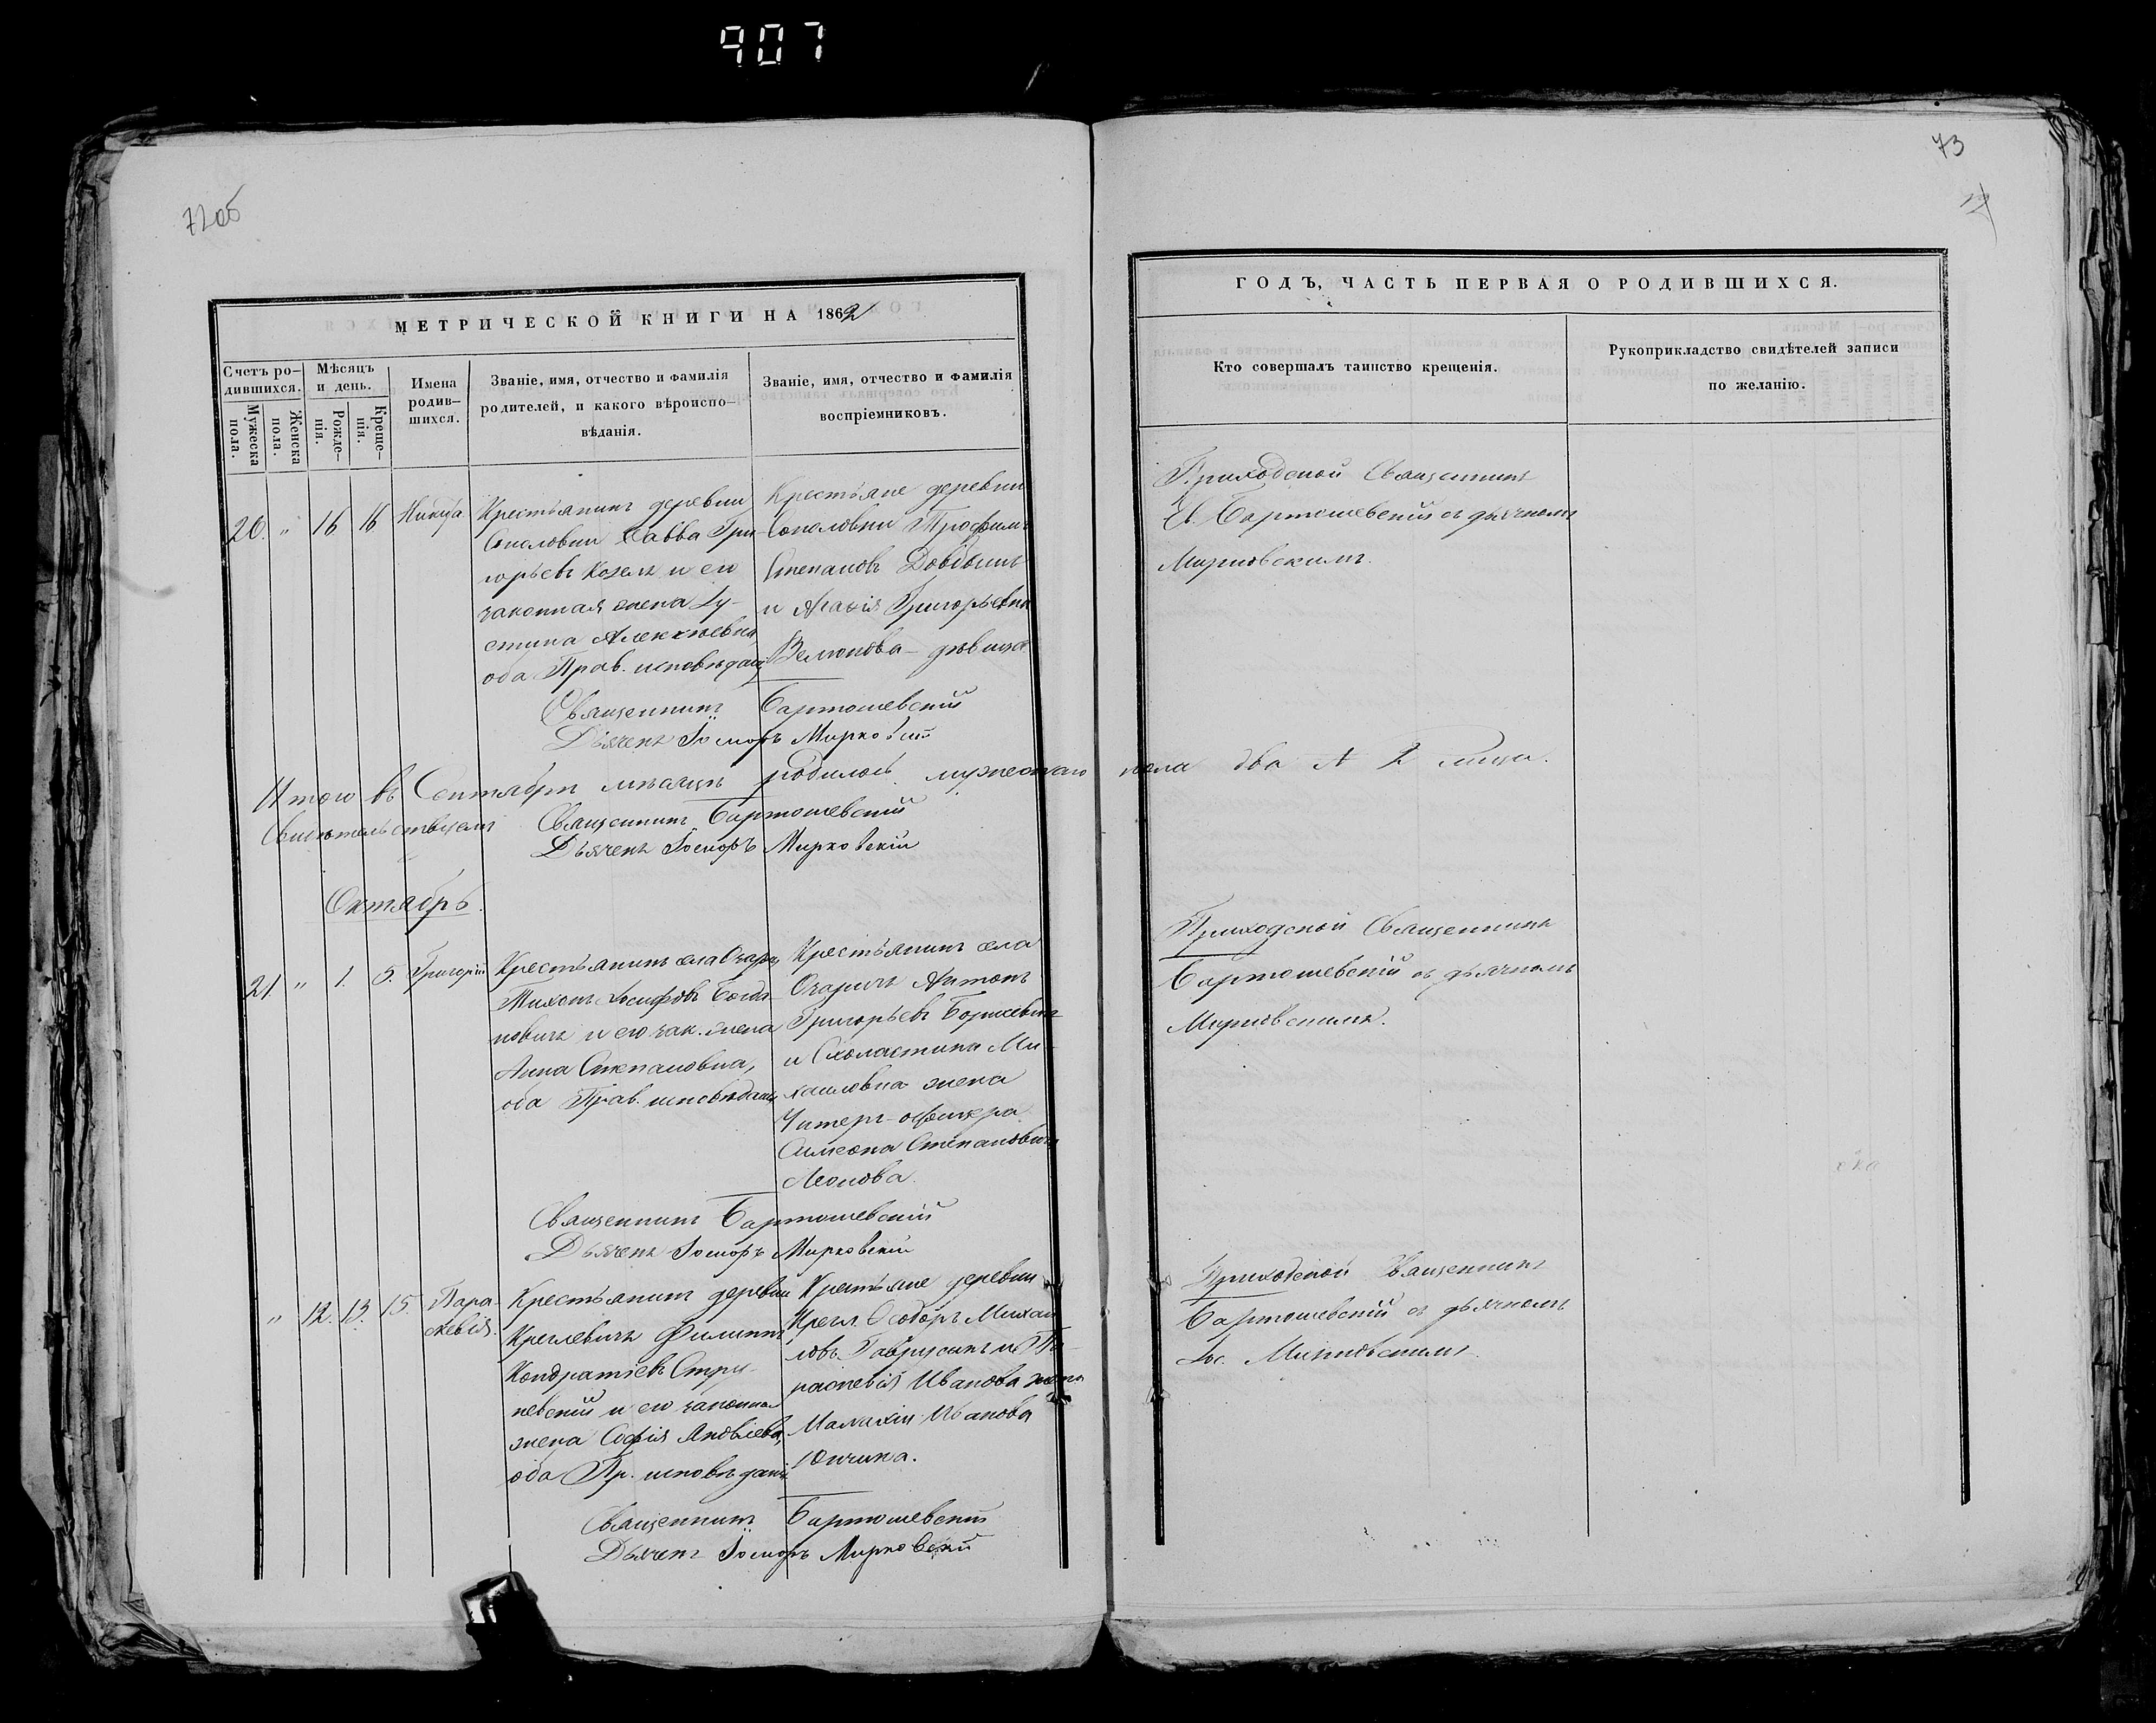 907
72об
73
МЕТРИЧЕСКОЙ КНИГИ НА 1862
ГОДЪ, ЧАСТЬ ПЕРВАЯ О РОДИВШИХСЯ.
Счетъ ро-
дившихся.
Мужеска
пола.
Женска
пола.
Мѣсяцъ
и день.
Рожде-
нія.
Креще-
нія.
Имена
родив-
шихся.
Званіе, имя, отчество и фамилія
родителей, и какого вѣроиспо-
вѣданія.
Званіе, имя, отчество и фамилія
воспріемниковъ.
Кто совершалъ таинство крещенія.
Рукоприкладство свидѣтелей записи
по желанію.
20. " 16 16 Никита
Крестьянинъ деревни
Савва Гри-
горьевъ Козелъ и его
законная жена Іу-
стина Алексіевна,
оба Прав. исповѣдан.
Крестьяне деревни
Трофимъ
Степановъ
и Агафія Григорьевна
дѣвица.
Приходской Священникъ
Бартошевскій съ дьячкомъ
Мирковскимъ.
Священникъ Бартошевскій
Дьячекъ Іосифъ Мирковскій
Итого въ Сентябрѣ мѣсяцѣ родилось мужескаго пола два
Священникъ Бартошевскій
Дьячекъ Іосифъ Мирковскій
Октябрь.
21. " 1. 5. Григорій
Крестьянинъ села
Тихонъ Іосифовъ Богда-
новичъ и его зак. жена
Анна Степановна,
оба Прав. исповѣданія
Крестьянинъ села
Антонъ
Григорьевъ
и Схоластика Ми-
хаиловна жена
Унтеръ-офицера
Симеона Степановича
Леонова.
Приходской Священникъ
Бартошевскій съ дьячкомъ
Мирковскимъ.
Священникъ Бартошевскій
Дьячекъ Іосифъ Мирковскій
" 12. 13. 15. Пара-
скевія.
Крестьянинъ деревни
Креглевичъ Филиппъ
Кондратіевъ
и его законная
жена Софія Яковлева,
оба Пр. исповѣданія
Крестьяне деревни
Крегл. Ѳеодоръ Михаи-
ловъ и Па-
раскевія Иванова жена
Малахіи Иванова
Приходской Священникъ
Бартошевскій съ дьячкомъ
Іос. Мирковскимъ.
Священникъ Бартошевскій
Дьячекъ Іосифъ Мирковскій